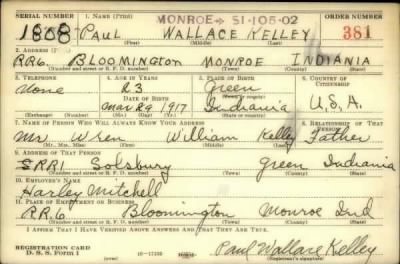 SERIAL NUMBER 1. NAME (Print) MONROE → 51-105-02 ORDER NUMBER
1808 PAUL WALLACE KELLEY 381
(First) (Middle) (Last)
2. ADDRESS (Print)
RR6. BLOOMINGTON MONROE INDIANIA
(Number and street or R. F. D. number) (Town) (County) (State)
3. TELEPHONE 4. AGE IN YEARS 5. PLACE OF BIRTH 6. COUNTRY OF CITIZENSHIP
None 23 Green
DATE OF BIRTH (Town or county)
Mar 29 1917 Indiania U.S.A.
(Exchange) (Number) (Mo.) (Day) (Yr.) (State or country)
7. NAME OF PERSON WHO WILL ALWAYS KNOW YOUR ADDRESS 8. RELATIONSHIP OF THAT PERSON
Mr Wren William Kelley Father
(Mr., Mrs., Miss) (First) (Middle) (Last)
9. ADDRESS OF THAT PERSON
SRR1 Solsbury Green Indiania
(Number and street or R. F. D. number) (Town) (County) (State)
10. EMPLOYER'S NAME
Harley Mitchell
11. PLACE OF EMPLOYMENT OR BUSINESS
RR.6 Bloomington Monroe Ind
(Number and street or R. F. D. number) (Town) (County) (State)
I AFFIRM THAT I HAVE VERIFIED ABOVE ANSWERS AND THAT THEY ARE TRUE.
REGISTRATION CARD
D. S. S. Form 1 Paul Wallace Kelley
(Registrant's signature)